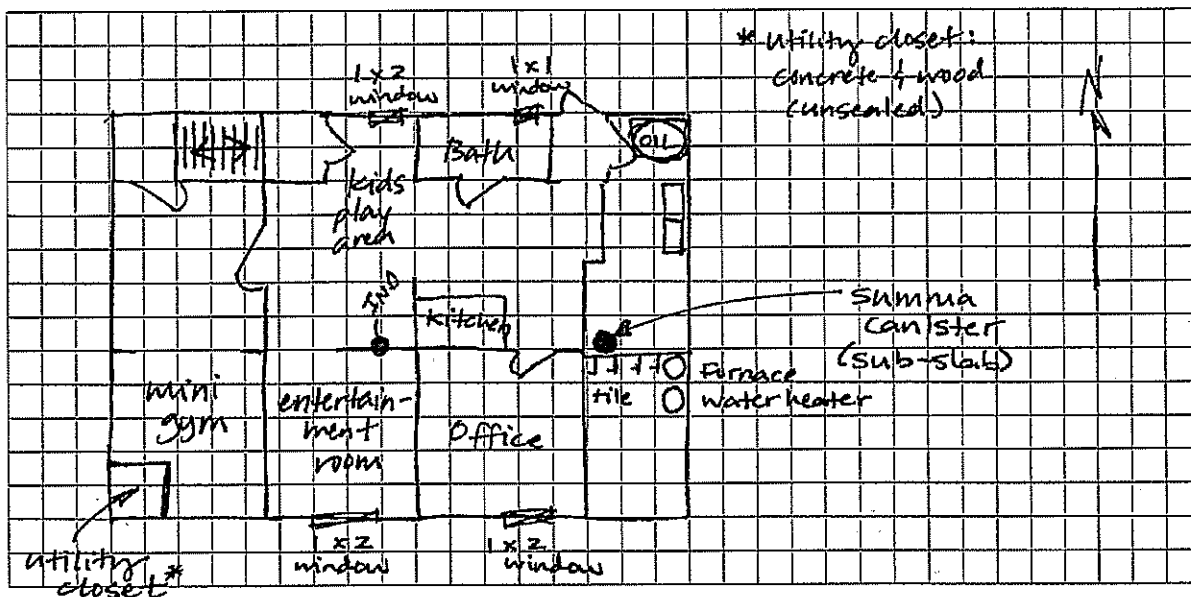 * Utility closet:
concrete & wood
(unsealed)
N
1 x 2
window
1 x 1
window
OIL
Bath
kids
play
area
IND
Kitchen
Summa
canister
(sub-slab)
Furnace
water heater
tile
mini
gym
entertain-
ment
room
Office
utility
closet*
1 x 2
window
1 x 2
window